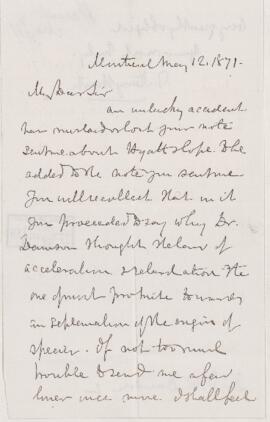 Montreal May 12. 1871.
My Dear Sir
an unlucky accident
has mislaid or lost your note
sent me about Hyatt & Cope. The
added to the note you sent me
You will recollect that in it
you proceeded to say why Dr.
Dawson thought the law of
acceleration & retardation the
one of most promise towards
an explanation of the origin of
species. If not too much
trouble to send me a few
lines once more. I shall feel